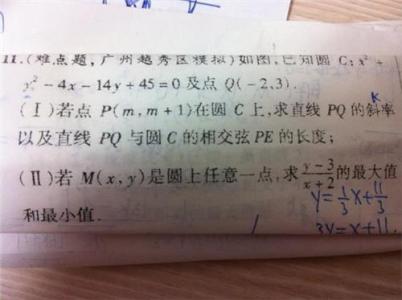 11.(难点题,广州越秀区模拟)如图,已知圆 C:x²+
y²-4x-14y+45=0及点 Q(-2,3).
(Ⅰ)若点 P(m,m+1)在圆 C 上,求直线 PQ 的斜率
K
以及直线 PQ 与圆 C 的相交弦PE 的长度;
(Ⅱ)若 M(x,y)是圆上任意一点,求\frac{y-3}{x+2}的最大值
和最小值.
y=\frac{1}{3}x+\frac{11}{3}
3y=x+11.